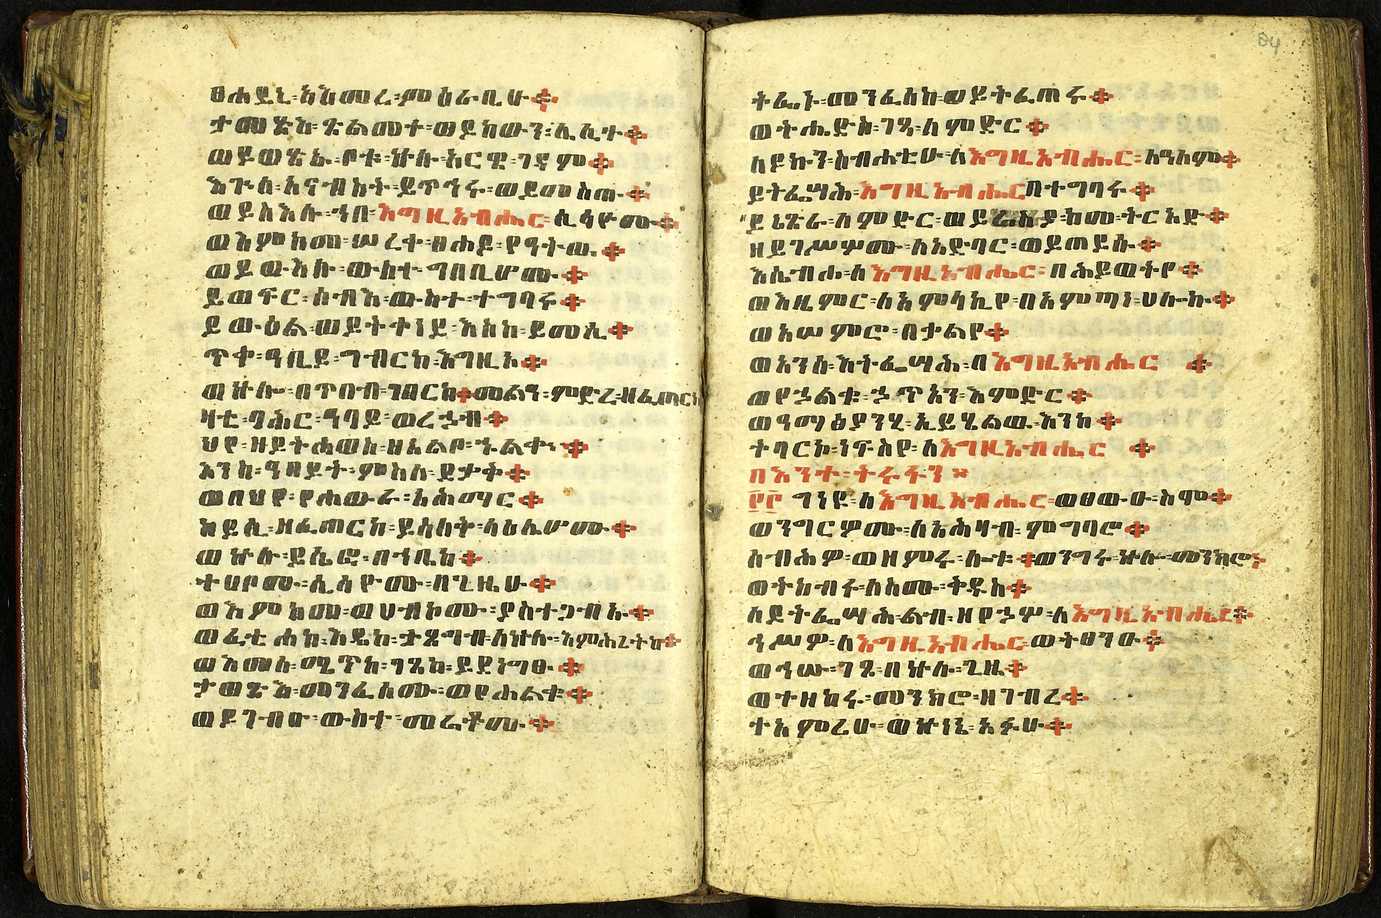 ፀሐይኒ፡አእመረ፡ምዕራቢሁ፨
ታመጽእ፡ጽልመተ፡ወይከውን፡ሌሊተ፨
ወይወጽኡ፡ቦቱ፡ኵሉ፡አርዌ፡ገዳም፨
እጕለ፡አናብስት፡ይጥኅሩ፡ወይመስጡ፨
ወይስእሉ፡ኀበ፡እግዚአብሔር፡ሲሳዮሙ፨
ወእምከመ፡ሠረቀ፡ፀሐይ፡የዓትዉ፨
ወይውእሉ፡ውስተ፡ግበቢሆሙ፨
ይወፍር፡ሰብእ፡ውስተ፡ተግባሩ፨
ይውዕል፡ወይትቀነይ፡እስከ፡ይመሲ፨
ጥቀ፡ዓቢይ፡ግብርከ፡እግዚኦ፨
ወኵሎ፡በጥበብ፡ገበርከ፨መልዓ፡ምድረ፡ዘፈጠርከ
ዛቲ፡ባሕር፡ዓባይ፡ወረኃብ፨
ህየ፡ዘይትሐወስ፡ዘአልቦ፡ኁልቈ፨
እንስሳ፡ዓበይት፡ምስለ፡ደቃቅ፨
ወበህየ፡የሐውራ፡አሕማር፨
ከይሲ፡ዘፈጠርከ፡ይሳለቅ፡ላዕሌሆሙ፨
ወኵሉ፡ይሴፎ፡በኀቤከ፨
ተሀቦሙ፡ሲሳዮሙ፡በጊዜሁ፨
ወእምከመ፡ወሀብኮሙ፡ያስተጋብኡ፨
ወፈቲሐከ፡እዴከ፡ታጸግብ፡ለኵሉ፡እምሕረትከ፨
ወእመሰ፡ሜጥከ፡ገጸከ፡ይደነግፁ፨
ታወጽእ፡መንፈሶሙ፡ወየሐልቁ፨
ወይገብኡ፡ውስተ፡መሬቶሙ፨
ትፌኑ፡መንፈሰከ፡ወይትፈጠሩ፨
ወትሔድስ፡ገጻ፡ለምድር፨
ለይኩን፡ስብሐቲሁ፡ለእግዚአብሔር፡ለዓለም፨
ይትፌሣሕ፡እግዚአብሔር፡በተግባሩ፨
ይኔጽራ፡ለምድር፡ወይሬስያ፡ከመ፡ትርአድ፨
ዘይገሥሦሙ፡ለአድባር፡ወይጠይሱ፨
እሴብሖ፡ለእግዚአብሔር፡በሕይወትየ፨
ወእዚምር፡ለአምላኪየ፡በአምጣነ፡ሀሎኩ፨
ወአሠምሮ፡በቃልየ፨
ወአንሰ፡እትፌሣሕ፡በእግዚአብሔር፨
ወየኃልቁ፡ኃጥአን፡እምድር፨
ወዓማፅያንሂ፡ኢይሄልዉ፡እንከ፨
ትባርኮ፡ነፍስየ፡ለእግዚአብሔር፨
በእንተ፡ትሩፋን፡
ግነዩ፡ለእግዚአብሔር፡ወፀውዑ፡ስሞ፨
ወንግርዎሙ፡ለአሕዛብ፡ምግባሮ፨
ሰብሕዎ፡ወዘምሩ፡ሎቱ፨ወንግሩ፡ኵሎ፡መንክሮ፨
ወትከብሩ፡በስሙ፡ቅዱስ፨
ለይትፌሣሕ፡ልብ፡ዘየኃሦ፡ለእግዚአብሔር፨
ኅሥዎ፡ለእግዚአብሔር፡ወትፀንዑ፨
ወኅሡ፡ገጾ፡በኵሉ፡ጊዜ፨
ወተዘከሩ፡መንክሮ፡ዘገብረ፨
ተአምረሁ፡ወኵነኔ፡አፉሁ፨